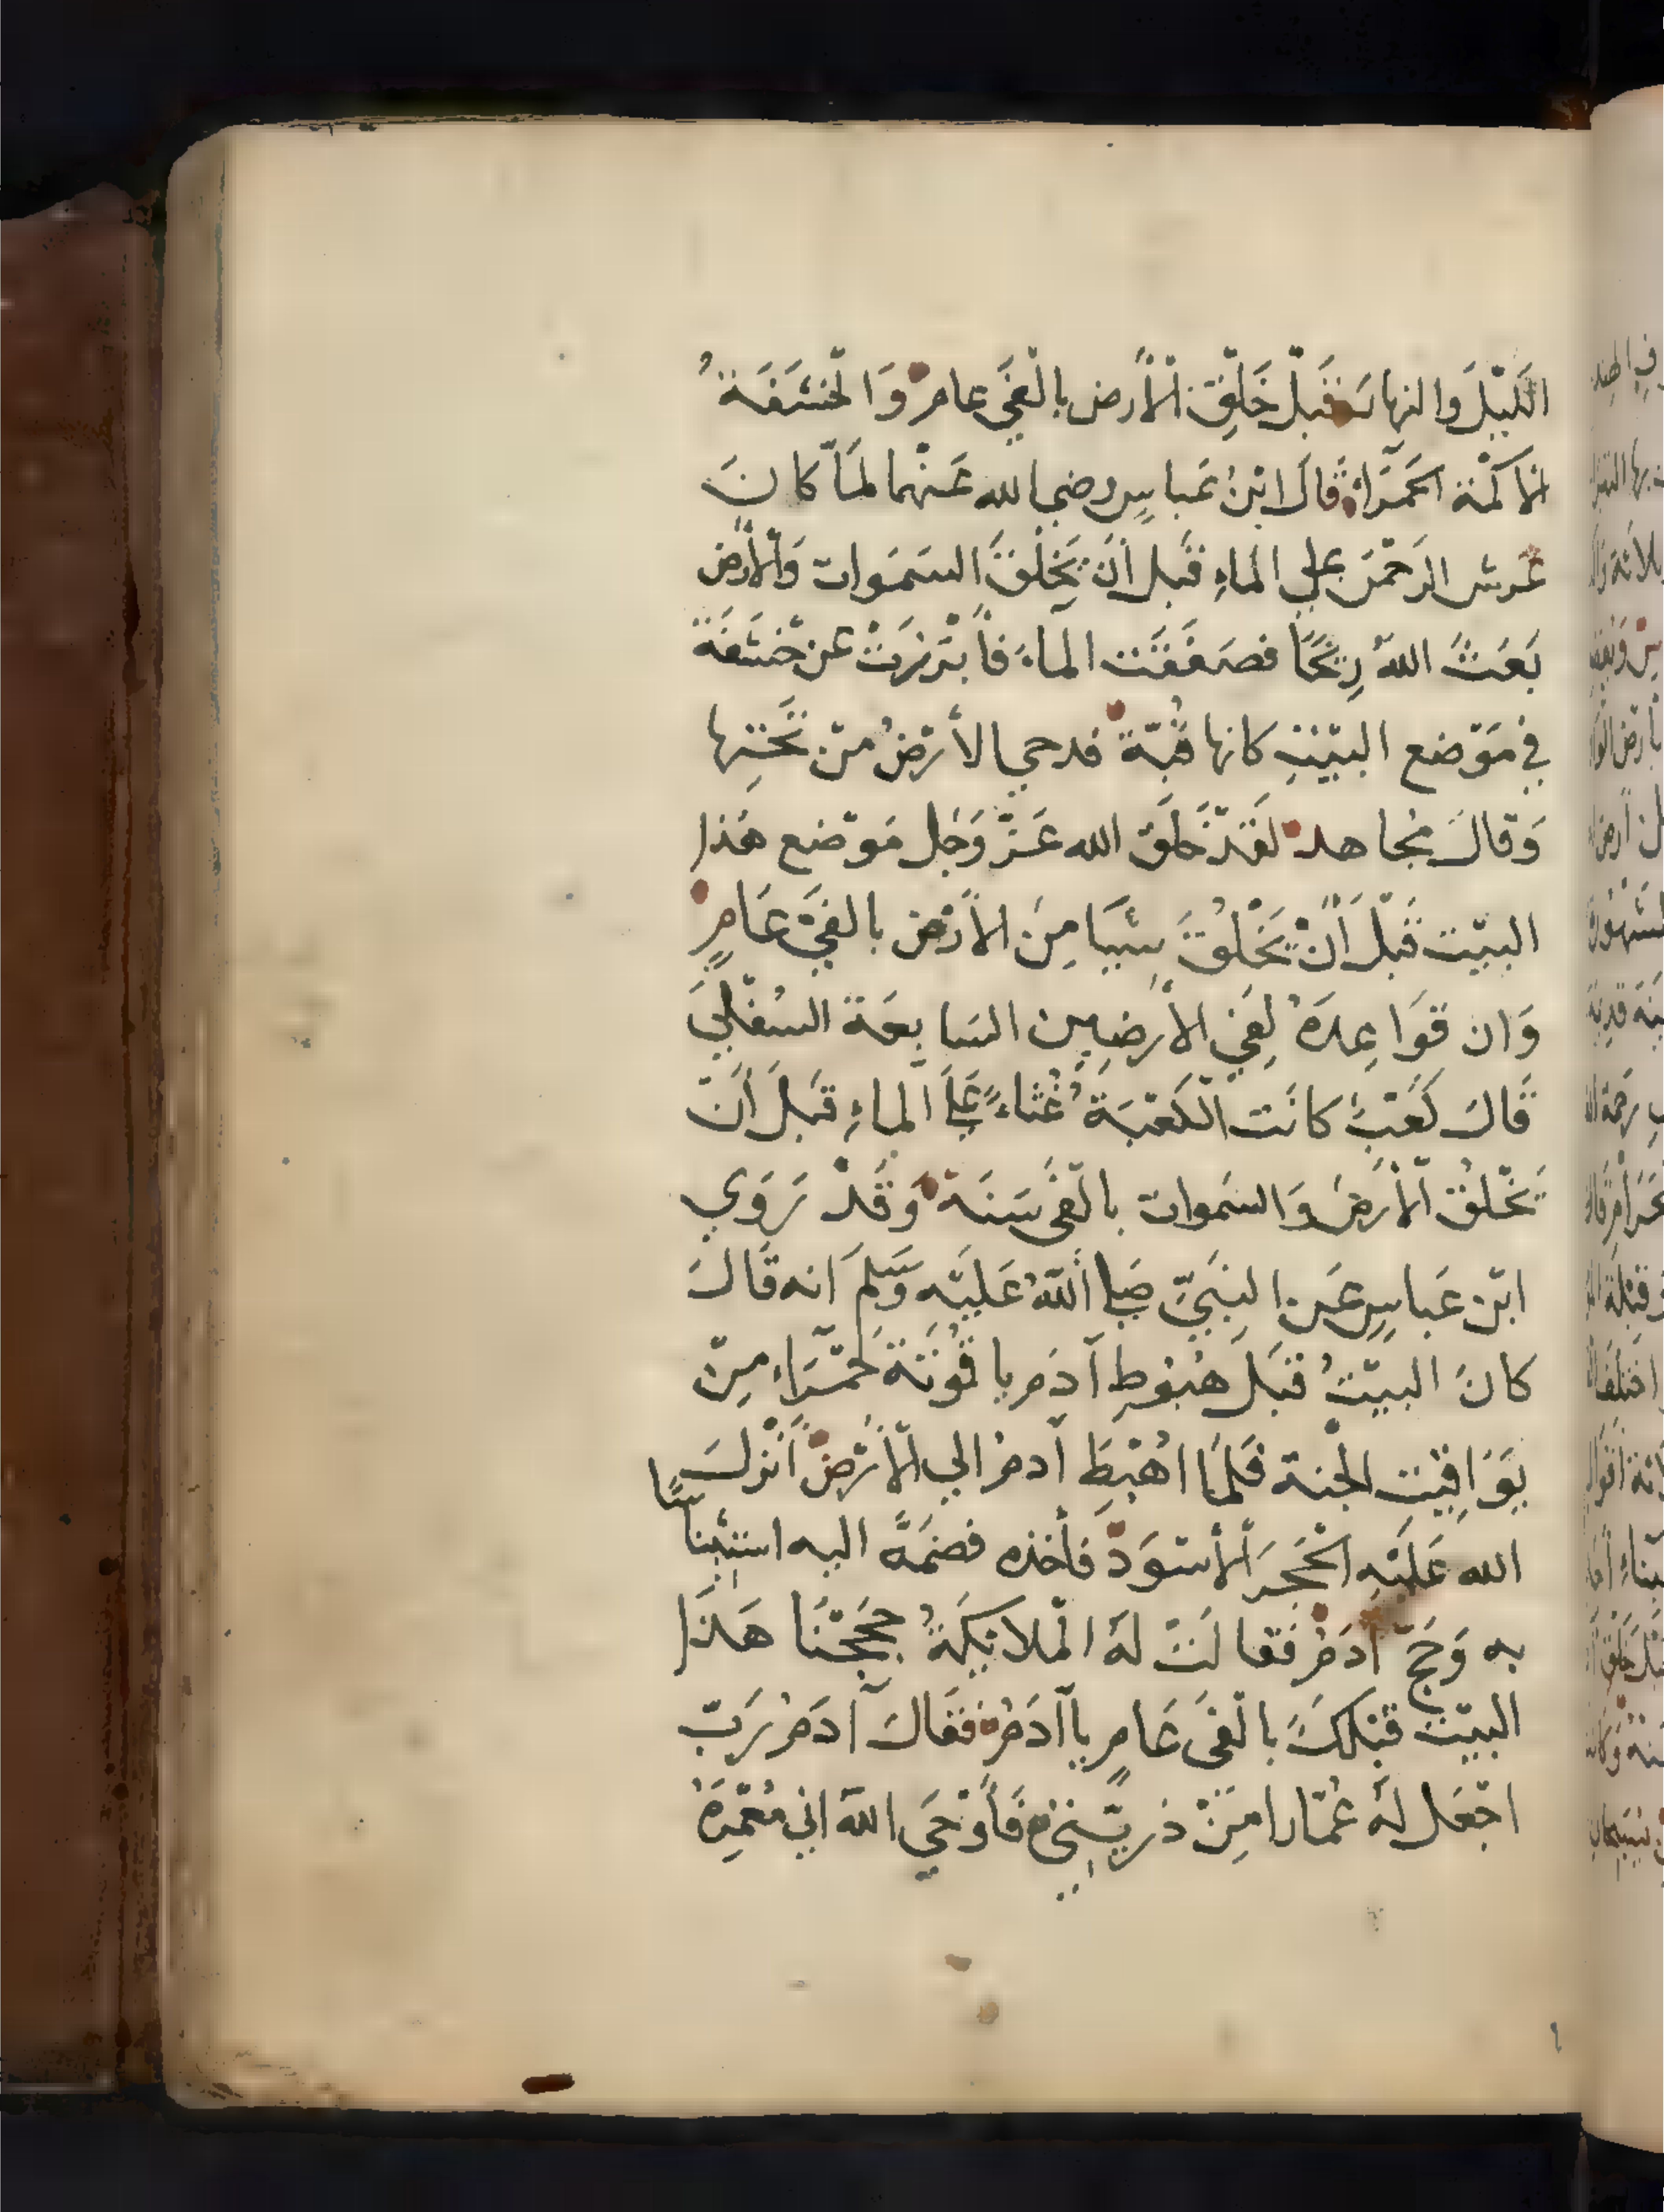 اللَّيْلَ وَالنهارَ قَبْلَ خَلْقِ الْأَرض بِالْفَيْ عامٍ وَالْخَشَفَةُ
الاكَمْة الحَمْرَاءُ قَالَ ابْنُ عَباسٍ رضي الله عَنْهما لمَّا كانَ
عَرش الرَحْمَن علي الماءِ قَبل أَنَ يَخْلُقَ السَمَوات وَالْأَرْض
بَعَثَ اللهُ رِيْحًا فصَفَقَت الماءَ فَأَبْرَزَتْ عَن خَشَفَة
فِي مَوْضع البَيْتِ كانها قُبّة فدحي الأَرْضُ مِنْ تَحْتِها
وَقالَ مُجاهد لَقَدْ خَلَقَ الله عَزَّ وَجَل مَوْضع هَذا
البيْت قَبْلَ أَنْ يَخْلُقَ شَيًا مِنَ الأَرْض بالفَيْ عَامٍ
وَان قوَاعِدَهُ لِفَي الأَرضِين السَابعَة السُفْلَي
قَالَ كَعْبُ كانَت الْكَعْبَةُ غُثاءً عَلَى الماءِ قَبلَ أَنَ
يَخْلُقَ الْأَرضَ وَالسَموات بالْفَي سَنَة وَقَدْ رَوَي
ابْن عَباسٍ عَن النَبَيِّ صَلى اللهُ عَلَيْهِ وَسَلمَ انه قَالَ
كانَ البيْتُ قَبلَ هُبُوطِ آدَم ياقُوتَة حَمْرَاء مِنْ
يَوَاقِيْتِ الجنة فَلَمَا اهْبَطَ آدمُ الي الْأَرْضِ أَنْزلَ
الله عَلَيْهِ الْحَجَر الْأَسْوَدَ فأخذه فضَمَهُ اليه استِئْناسًا
به وَحَجَّ آدَمُ فقالَتْ لَهُ الْملايكَةُ حَجَجْنَا هَذَا
البيْت قبْلكَ بالْفَى عَامٍ ياآدَمُ فَقَالَ آدَمُ رَبِّ
اجْعَل لَهُ عُمّارا مِنْ ذريّتِيْ فَأَوْحَي اللهُ اني مُعْمِرَهُ